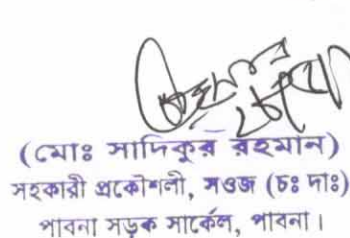 (মোঃ সাদিকুর রহমান)
সহকারী প্রকৌশলী, সওজ (চঃ দাঃ)
পাবনা সড়ক সার্কেল, পাবনা।